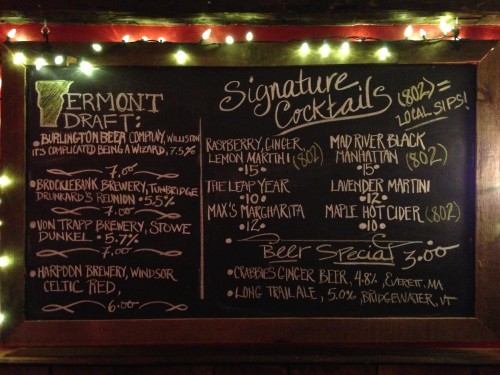 VERMONT
DRAFT:
• BURLINGTON BEER COMPANY, WILLISTON
IT'S COMPLICATED BEING A WIZARD, 7.5%
7.00
• BROCKLEBANK BREWERY, TUNBRIDGE
DRUNKARD'S REUNION • 5.5%
7.00
• VON TRAPP BREWERY, STOWE
DUNKEL • 5.7%
7.00
• HARPOON BREWERY, WINDSOR
CELTIC RED,
6.00
Signature
Cocktails
(802) =
LOCAL SIPS!
RASPBERRY, GINGER,
LEMON MARTINI (802)
• 15 •
THE LEAP YEAR
• 10 •
MAX'S MARGHARITA
• 12 •
MAD RIVER BLACK
MANHATTAN (802)
• 15 •
LAVENDER MARTINI
• 12 •
MAPLE HOT CIDER (802)
• 10 •
Beer Special 3.00
• CRABBIES GINGER BEER, 4.8%, EVERETT, MA
• LONG TRAIL ALE, 5.0%, BRIDGEWATER, VT